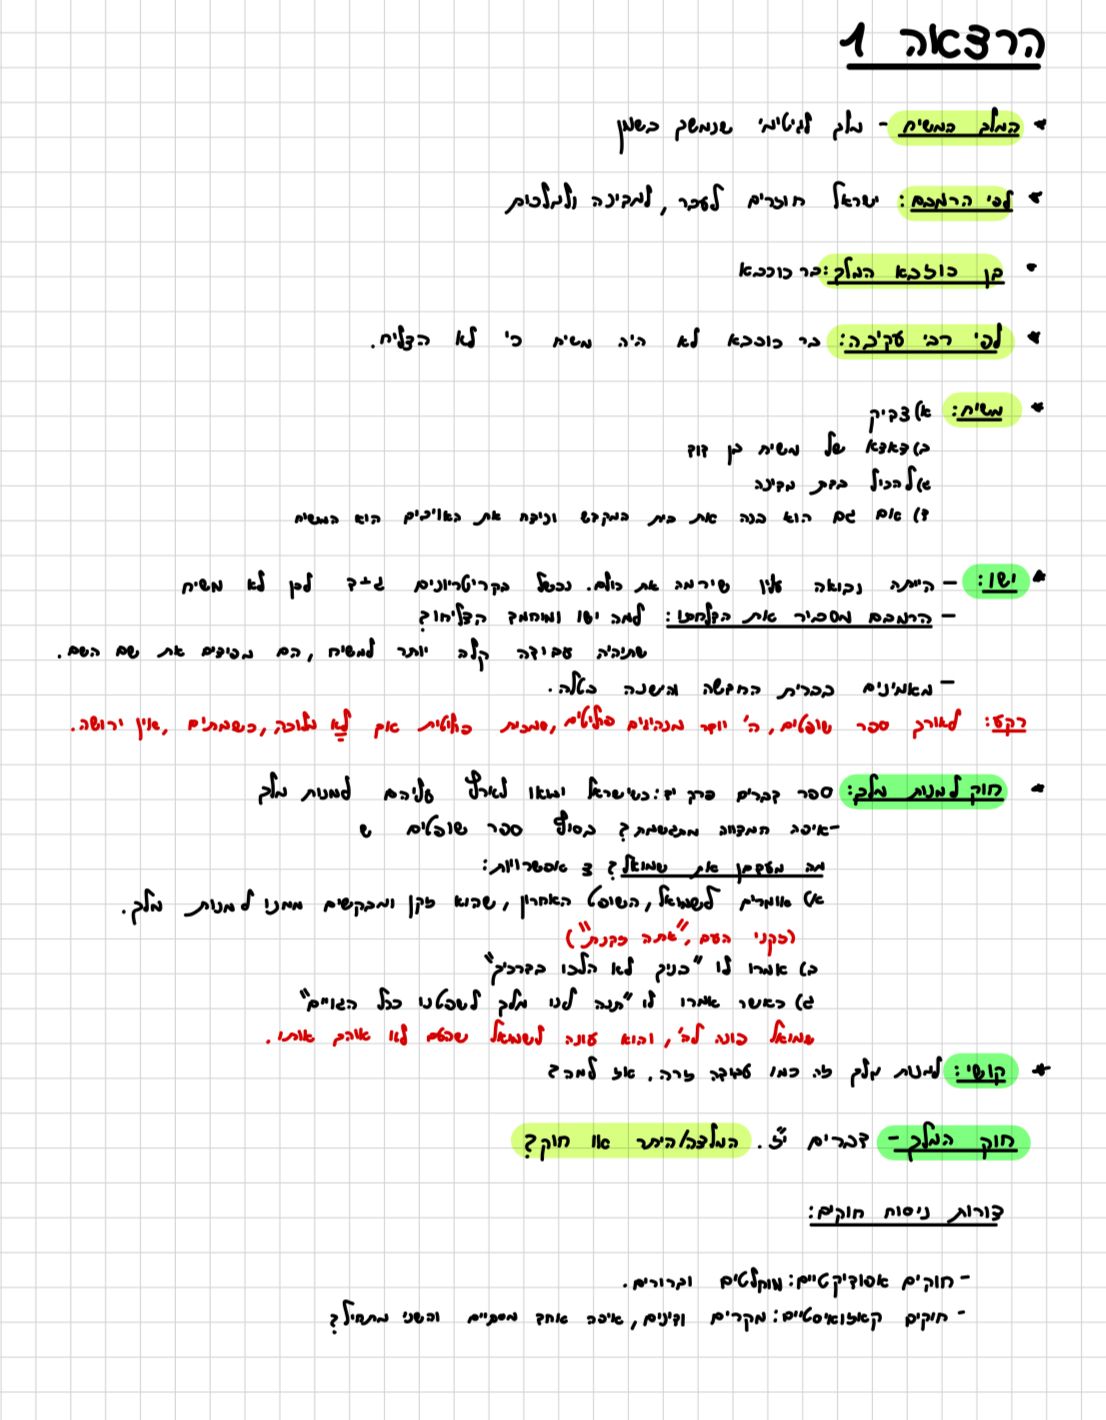 הרצאה 1
* המלך המשיח - מלך לגיטימי שנמשך בשמן
* לפי הרמבם: ישראל חוזרים לעבר, למדינה ולמלכות
* בן כוזבא המלך: בר כוכבא
* לפי רבי עקיבה: בר כוכבא לא היה משיח כי לא הצליח.
* משיח: א) צדיק
ב) צאצא של משיח בן דוד
ג) להכיל בבת מדינה
ד) אם גם הוא בנה את בית המקדש וניצח את האויבים הוא המשיח
* ישו: - הייתה נבואה עליו שירמה את כולם. נכשל בקריטריונים ג+ד לכן לא משיח
- הרמבם מסביר את הצלחתו: למה ישו ומוחמד הצליחו?
שתיהיה עבודה קלה יותר למשיח, הם מפיצים את שם השם.
- מאמינים בברית החדשה והישנה בטלה.
רקע: לאורך ספר שופטים, ה' יוצר מנהיגים פוליטים, סמכות פוליטית אך לא מלוכה, כשמתים, אין ירושה.
* חוק למנות מלך: ספר דברים פרק יד: כשישראל יבואו לארץ עליהם למנות מלך
- איפה המצווה מתגשמת? בסוף ספר שופטים ש
מה מעצבן את שמואל? 3 אפשרויות:
א) אומרים לשמואל, השופט האחרון, שהוא זקן ומבקשים ממנו למנות מלך.
(זקני העם, "אתה זקנת")
ב) אמרו לו "בניך לא הלכו בדרכיך"
ג) כאשר אמרו לו "תנה לנו מלך לשפטנו ככל הגויים"
שמואל פונה לה', והוא עונה לשמואל שהעם לא אוהב אותו.
* קושי: למנות מלך זה כמו עבודה זרה. אז למה?
חוק המלך - דברים י"ז. המלצה/היתר או חוק?
צורות ניסוח חוקים:
- חוקים אפודיקטיים: מוחלטים וברורים.
- חוקים קאזואיסטיים: מקרים ודינים, איפה אחד מסתיים והשני מתחיל?